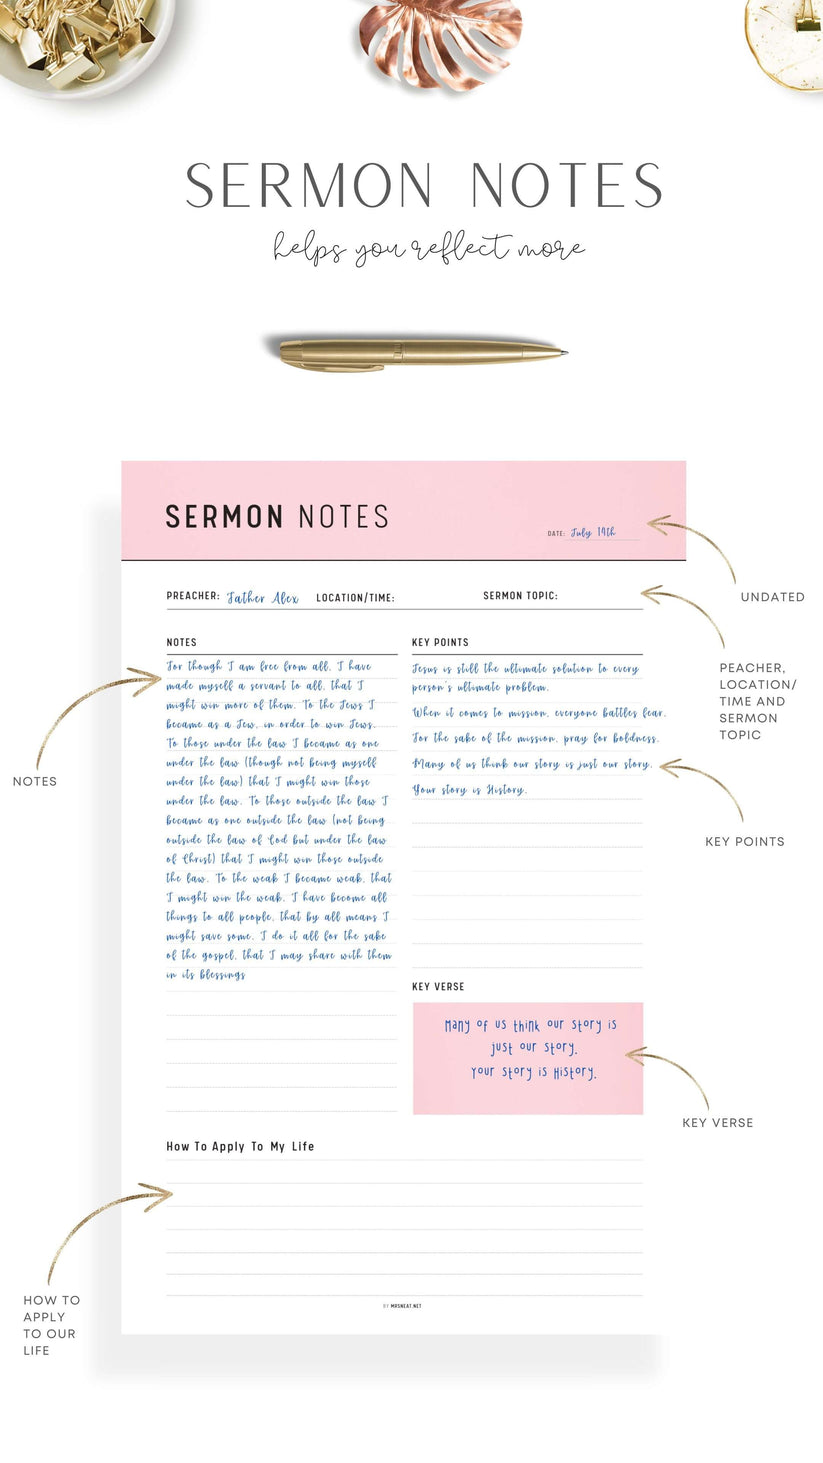 SERMON NOTES
helps you reflect more
SERMON NOTES
DATE: July 14th
UNDATED
PREACHER: Father Alex LOCATION/TIME: SERMON TOPIC:
PEACHER,
LOCATION/
TIME AND
SERMON
TOPIC
NOTES
For though I am free from all, I have
made myself a servant to all, that I
might win more of them. To the Jews I
became as a Jew, in order to win Jews.
To those under the law I became as one
under the law (though not being myself
under the law) that I might win those
under the law. To those outside the law I
became as one outside the law (not being
outside the law of God but under the law
of Christ) that I might win those outside
the law. To the weak I became weak, that
I might win the weak. I have become all
things to all people, that by all means I
might save some. I do it all for the sake
of the gospel, that I may share with them
in its blessings
NOTES
KEY POINTS
Jesus is still the ultimate solution to every
person's ultimate problem.
When it comes to mission, everyone battles fear.
For the sake of the mission, pray for boldness.
Many of us think our story is just our story.
Your story is History.
KEY POINTS
KEY VERSE
Many of us think our story is
just our story.
Your story is History.
KEY VERSE
How To Apply To My Life
HOW TO
APPLY
TO OUR
LIFE
BY MRSNEAT.NET